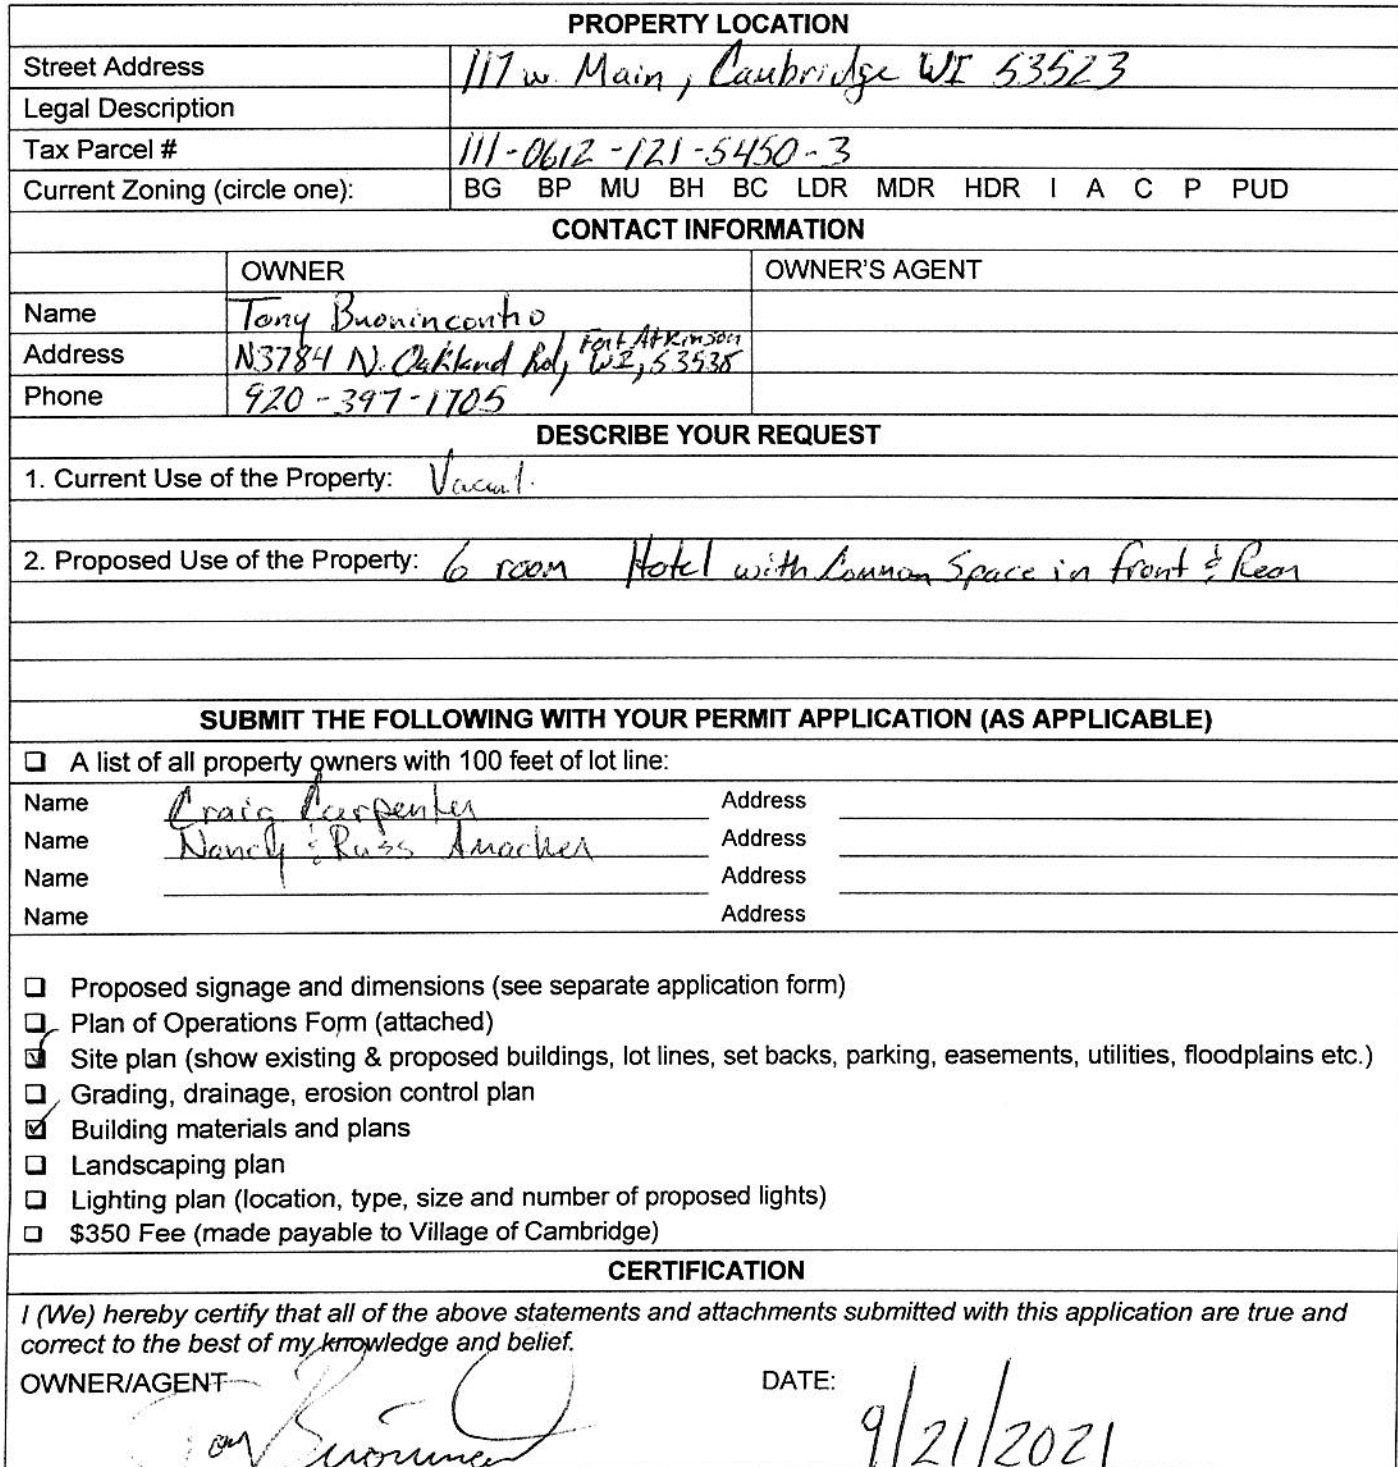 PROPERTY LOCATION
Street Address 117 w. Main, Cambridge WI 53523
Legal Description
Tax Parcel # 111-0612-121-5450-3
Current Zoning (circle one): BG BP MU BH BC LDR MDR HDR I A C P PUD
CONTACT INFORMATION
OWNER OWNER'S AGENT
Name Tony Buonincontro
Address N3784 N. Oakland Rd, Fort Atkinson WI, 53538
Phone 920-397-1705
DESCRIBE YOUR REQUEST
1. Current Use of the Property: Vacant.
2. Proposed Use of the Property: 6 room Hotel with Common Space in front & Rear
SUBMIT THE FOLLOWING WITH YOUR PERMIT APPLICATION (AS APPLICABLE)
❑ A list of all property owners with 100 feet of lot line:
Name Craig Carpenter Address
Name Nancy & Russ Amacher Address
Name Address
Name Address
❑ Proposed signage and dimensions (see separate application form)
❑ Plan of Operations Form (attached)
☑ Site plan (show existing & proposed buildings, lot lines, set backs, parking, easements, utilities, floodplains etc.)
❑ Grading, drainage, erosion control plan
☑ Building materials and plans
❑ Landscaping plan
❑ Lighting plan (location, type, size and number of proposed lights)
❑ $350 Fee (made payable to Village of Cambridge)
CERTIFICATION
I (We) hereby certify that all of the above statements and attachments submitted with this application are true and
correct to the best of my knowledge and belief.
OWNER/AGENT DATE:
Tony 9/21/2021